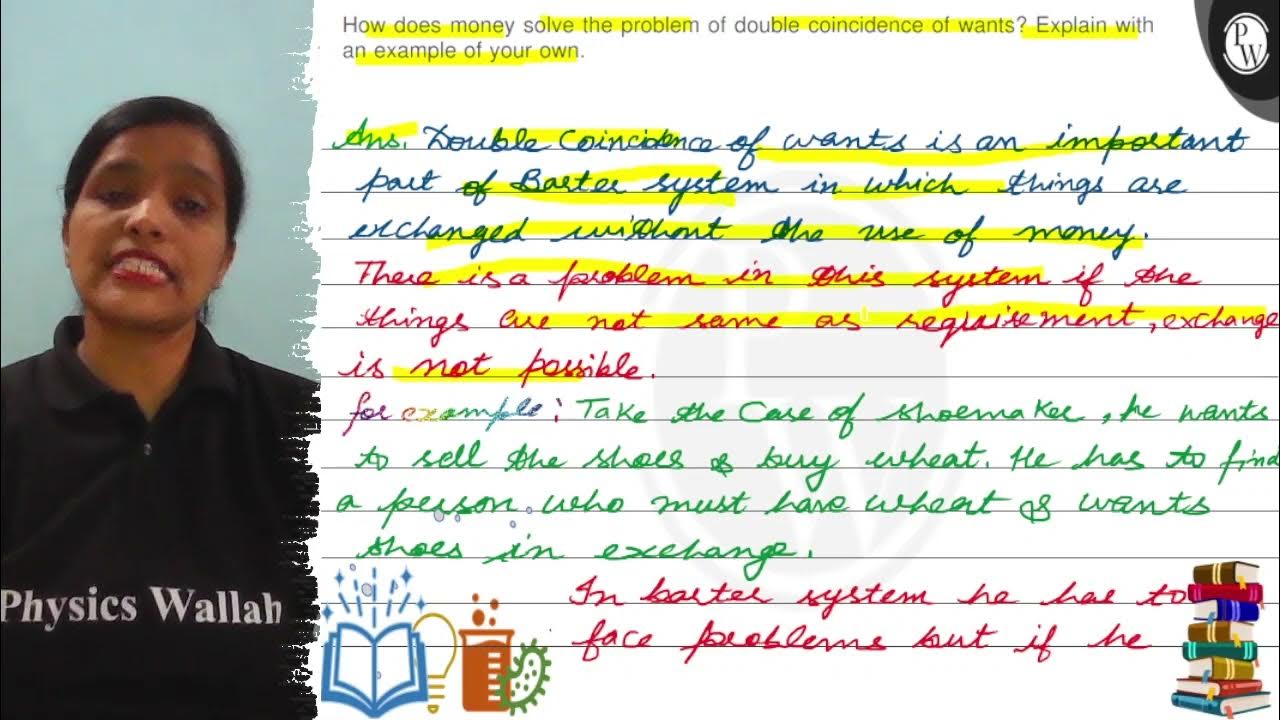 How does money solve the problem of double coincidence of wants? Explain with
an example of your own.
PW
Ans. Double Coincidence of wants is an important
part of Barter system in which things are
exchanged without the use of money.
There is a problem in this system if the
things are not same as requirement, exchange
is not possible.
for example: Take the case of shoemaker, he wants
to sell the shoes & buy wheat. He has to find
a person who must have wheat & wants
shoes in exchange.
In barter system he has to
face problems but if he
Physics Wallah